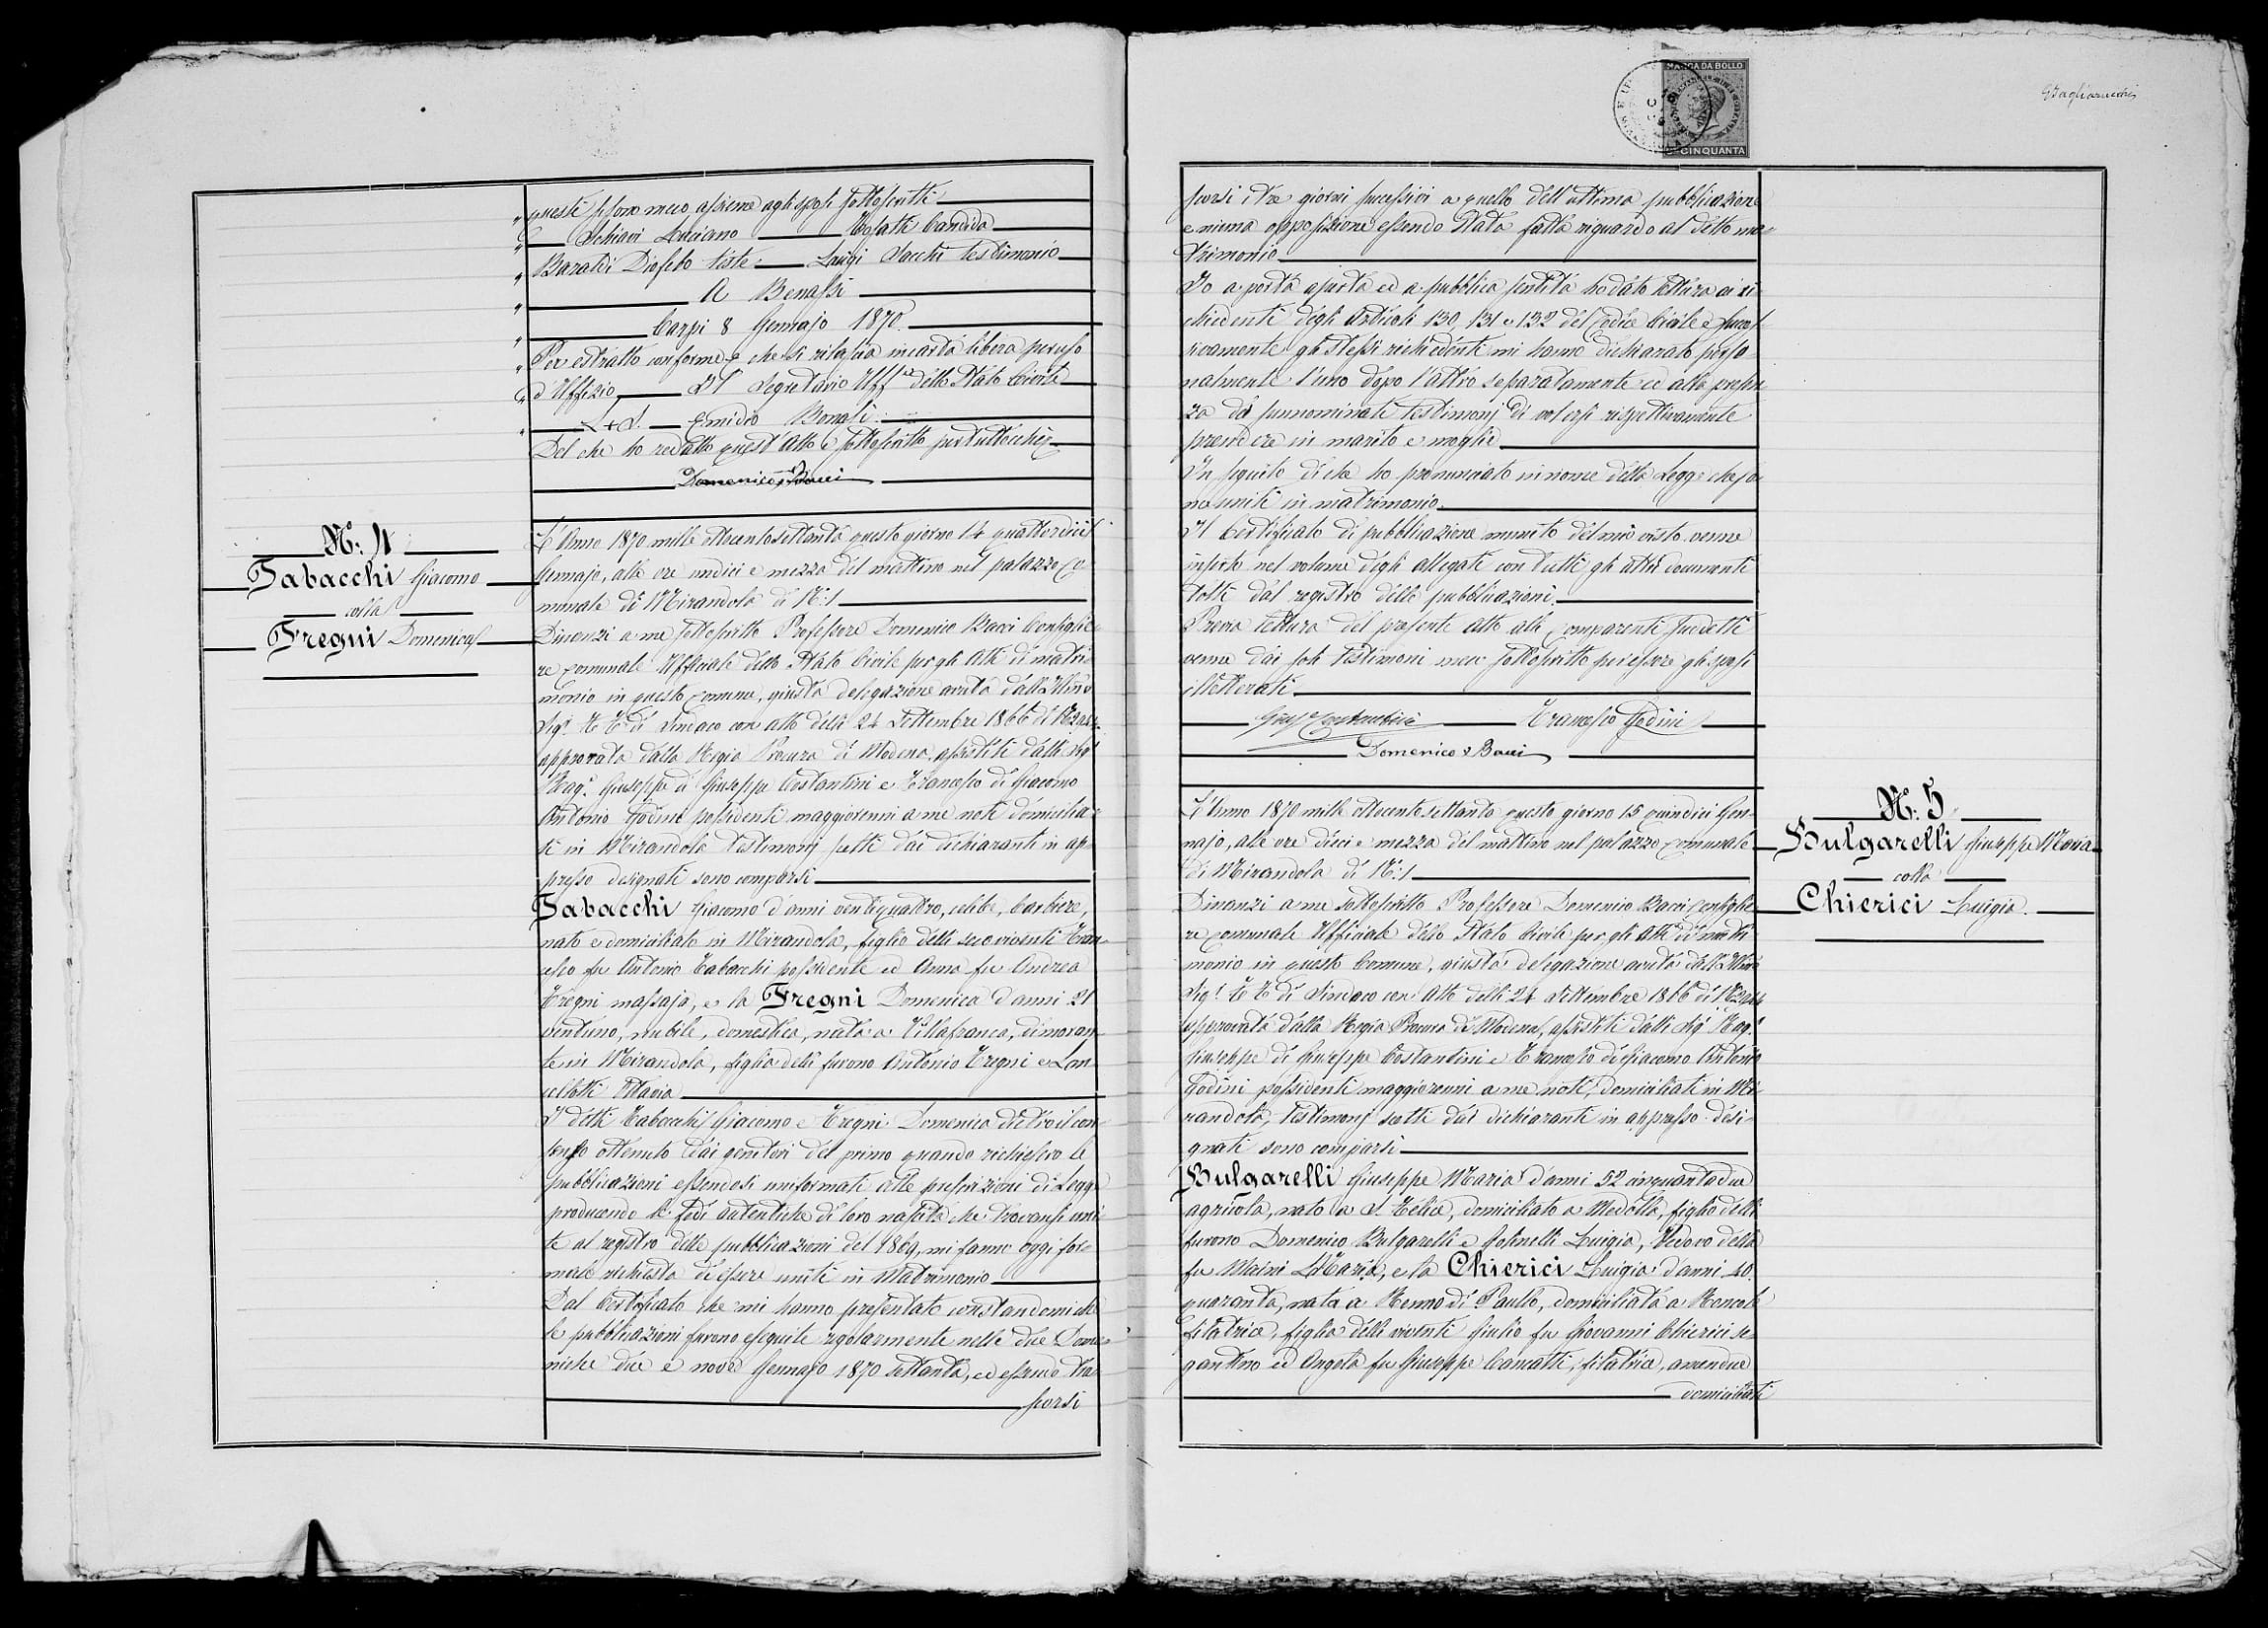 questi si sono meco assieme agli sposi sottoscritti
Schiavi Luciano Cosatti Candida
Baraldi Diofebo teste: Luigi Sacchi testimonio
A Benassi
Carpi 8 Gennajo 1870.
Per estratto conforme e che si rilascia in carta libera per uso
d'Uffizio Il Segretario Uff.le dello Stato Civile
L + S. Emidio Bonasi
Del che ho redatto quest'Atto e sottoscritto
Domenico Bacci
N.º 4
Tabacchi Giacomo
colla
Fregni Domenica
L'Anno 1870 mille ottocento settanta questo giorno 14 quattordici
Gennajo, alle ore undici e mezza del mattino nel palazzo Co-
munale di Mirandola di N.º 1
Dinanzi a me sottoscritto Professore Domenico Bacci Consiglie-
re Comunale Uffiziale dello Stato Civile per gli Atti di matri-
monio in questo Comune, giusta delegazione avuta dall'Ill.mo
Sig.r di Sindaco con atto delli 24 Settembre 1866 di N.
approvata dalla Regia Procura di Modena, assistiti dalli Sig.i
Rag.e Giuseppe di Giuseppe Costantini e Francesco di Giacomo
Antonio Godini possidenti maggiorenni a me noti domicilia-
ti in Mirandola Testimonj scelti dai dichiaranti in ap-
presso designati sono comparsi
Tabacchi Giacomo d'anni ventiquattro, celibe, barbiere,
nato e domiciliato in Mirandola, figlio delli seco viventi Fran-
cesco fu Antonio Tabacchi possidente ed Anna fu Andrea
Fregni massaja, e la Fregni Domenica d'anni 21
ventuno, nubile, domestica, nata a Villafranca, dimoran-
te in Mirandola, figlia delli furono Antonio Fregni e Lan-
cellotti Ottavia
I detti Tabacchi Giacomo e Fregni Domenica dietro il con-
senso ottenuto dai genitori del primo quando richiesero le
pubblicazioni essendosi uniformati alle prescrizioni di Legge
producendo le fedi autentiche di loro nascita che trovansi uni-
te al registro delle pubblicazioni del 1869, mi fanno oggi for-
male richiesta di essere uniti in Matrimonio
Dal Certificato che mi hanno presentato constandomi che
le pubblicazioni furono eseguite regolarmente nelle due Dome-
niche due e nove Gennajo 1870 settanta, ed essendo tra-
scorsi
MARCA DA BOLLO
CINQUANTA
scorsi i tre giorni successivi a quello dell'ultima pubblicazione
e niuna opposizione essendo stata fatta riguardo al detto ma-
trimonio
Io a porta aperta ed a pubblica sentita ho dato lettura ai ri-
chiedenti degli Articoli 130, 131 e 132 del Codice Civile e succes-
sivamente gli stessi richiedenti mi hanno dichiarato perso-
nalmente l'uno dopo l'altro separatamente ed alla presen-
za dei sunnominati testimonj di volersi rispettivamente
prendere in marito e moglie
In seguito di che ho pronunciato in nome della Legge che so-
no uniti in matrimonio.
Il Certificato di pubblicazione munito del mio visto venne
inserto nel volume degli allegati con tutti gli altri documenti
tolti dal registro delle pubblicazioni.
Previa lettura del presente atto alli comparenti suddetti
venne dai soli testimoni meco sottoscritto per essere gli sposi
illetterati
Gius. Costantini Francesco Godini
Domenico Bacci
N.º 5
Bulgarelli Giuseppe Maria
colla
Chierici Luigia.
L'Anno 1870 mille ottocento settanta questo giorno 15 quindici Gen-
najo, alle ore dieci e mezza del mattino nel palazzo Comunale
di Mirandola di N.º 1
Dinanzi a me sottoscritto Professore Domenico Bacci Consiglie-
re Comunale Uffiziale dello Stato Civile per gli Atti di matri-
monio in questo Comune, giusta delegazione avuta dall'Ill.mo
Sig.r di Sindaco con Atto delli 24 Settembre 1866 di N.
approvata dalla Regia Procura di Modena, assistiti dalli Sig.i Rag.e
Giuseppe di Giuseppe Costantini e Francesco di Giacomo Antonio
Godini possidenti maggiorenni a me noti, domiciliati in Mi-
randola, Testimonj scelti dai dichiaranti in appresso desi-
gnati sono comparsi
Bulgarelli Giuseppe Maria d'anni 52 cinquantadue
agricola, nato a S. Felice, domiciliato a Medolla, figlio delli
furono Domenico Bulgarelli e Golinelli Luigia, Vedovo della
fu Maini Maria, e la Chierici Luigia d'anni 40
quaranta, nata a Renno di Paullo, domiciliata a Roncole
filatrice, figlia delli viventi Giulio fu Giovanni Chierici se-
gantino ed Angela fu Giuseppe filatrice, amendue
domiciliati